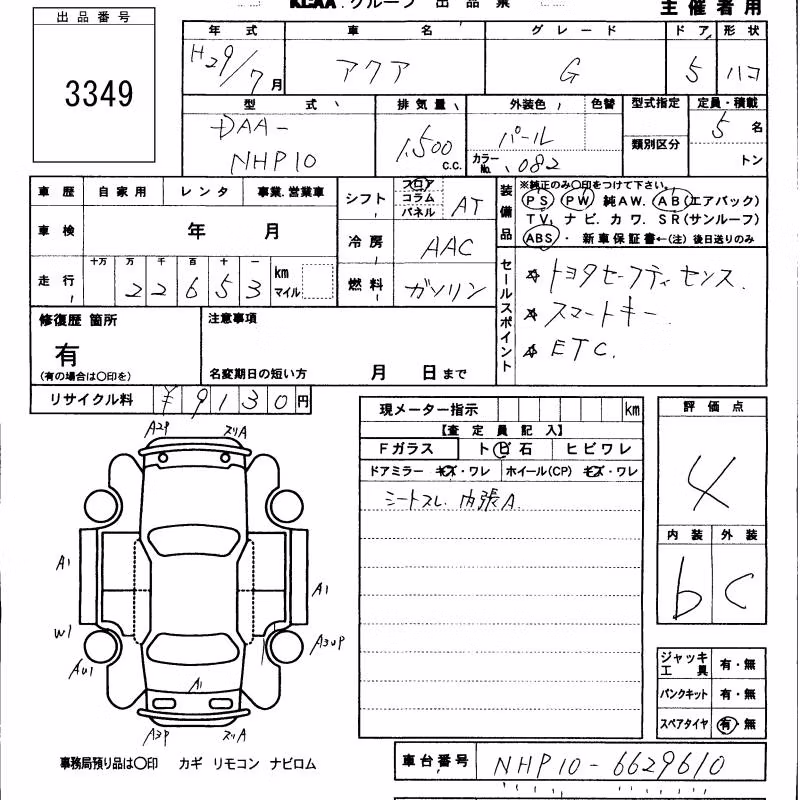 KCAA.グループ 出品票
主催者用
出品番号
3349
年式 車名 グレード ドア 形状
H29/7月 アクア G 5 ハコ
型式 排気量 外装色 色替 型式指定 定員・積載
DAA-NHP10 1,500 c.c. パール 類別区分 5名
カラーNo. 082 トン
車歴 自家用 レンタ 事業.営業車
車検 年 月
走行 十万 万 千 百 十 一
22653 km マイル
シフト フロア コラム パネル AT
冷房 AAC
燃料 ガソリン
装備品
※純正のみ○印をつけて下さい。
PS PW 純AW. AB(エアバック)
TV. ナビ. カワ. SR(サンルーフ)
ABS・ 新車保証書←(注)後日送りのみ
セールスポイント
☆ トヨタセーフティセンス.
☆ スマートキー.
☆ ETC.
修復歴 箇所
有
(有の場合は○印を)
注意事項
名変期日の短い方 月 日まで
リサイクル料 ¥9130円
現メーター指示 km
【査定員記入】
Fガラス ト ビ 石 ヒビワレ
ドアミラー キズ・ワレ ホイール(CP) キズ・ワレ
シートスレ. 内張A.
評価点
4
内装 外装
b C
ジャッキ工具 有・無
パンクキット 有・無
スペアタイヤ 有・無
A2P ズリA
A1 A1
W1 A3UP
AU1
A1
A3P ズリA
事務局預り品は○印 カギ リモコン ナビロム
車台番号 NHP10-6629610